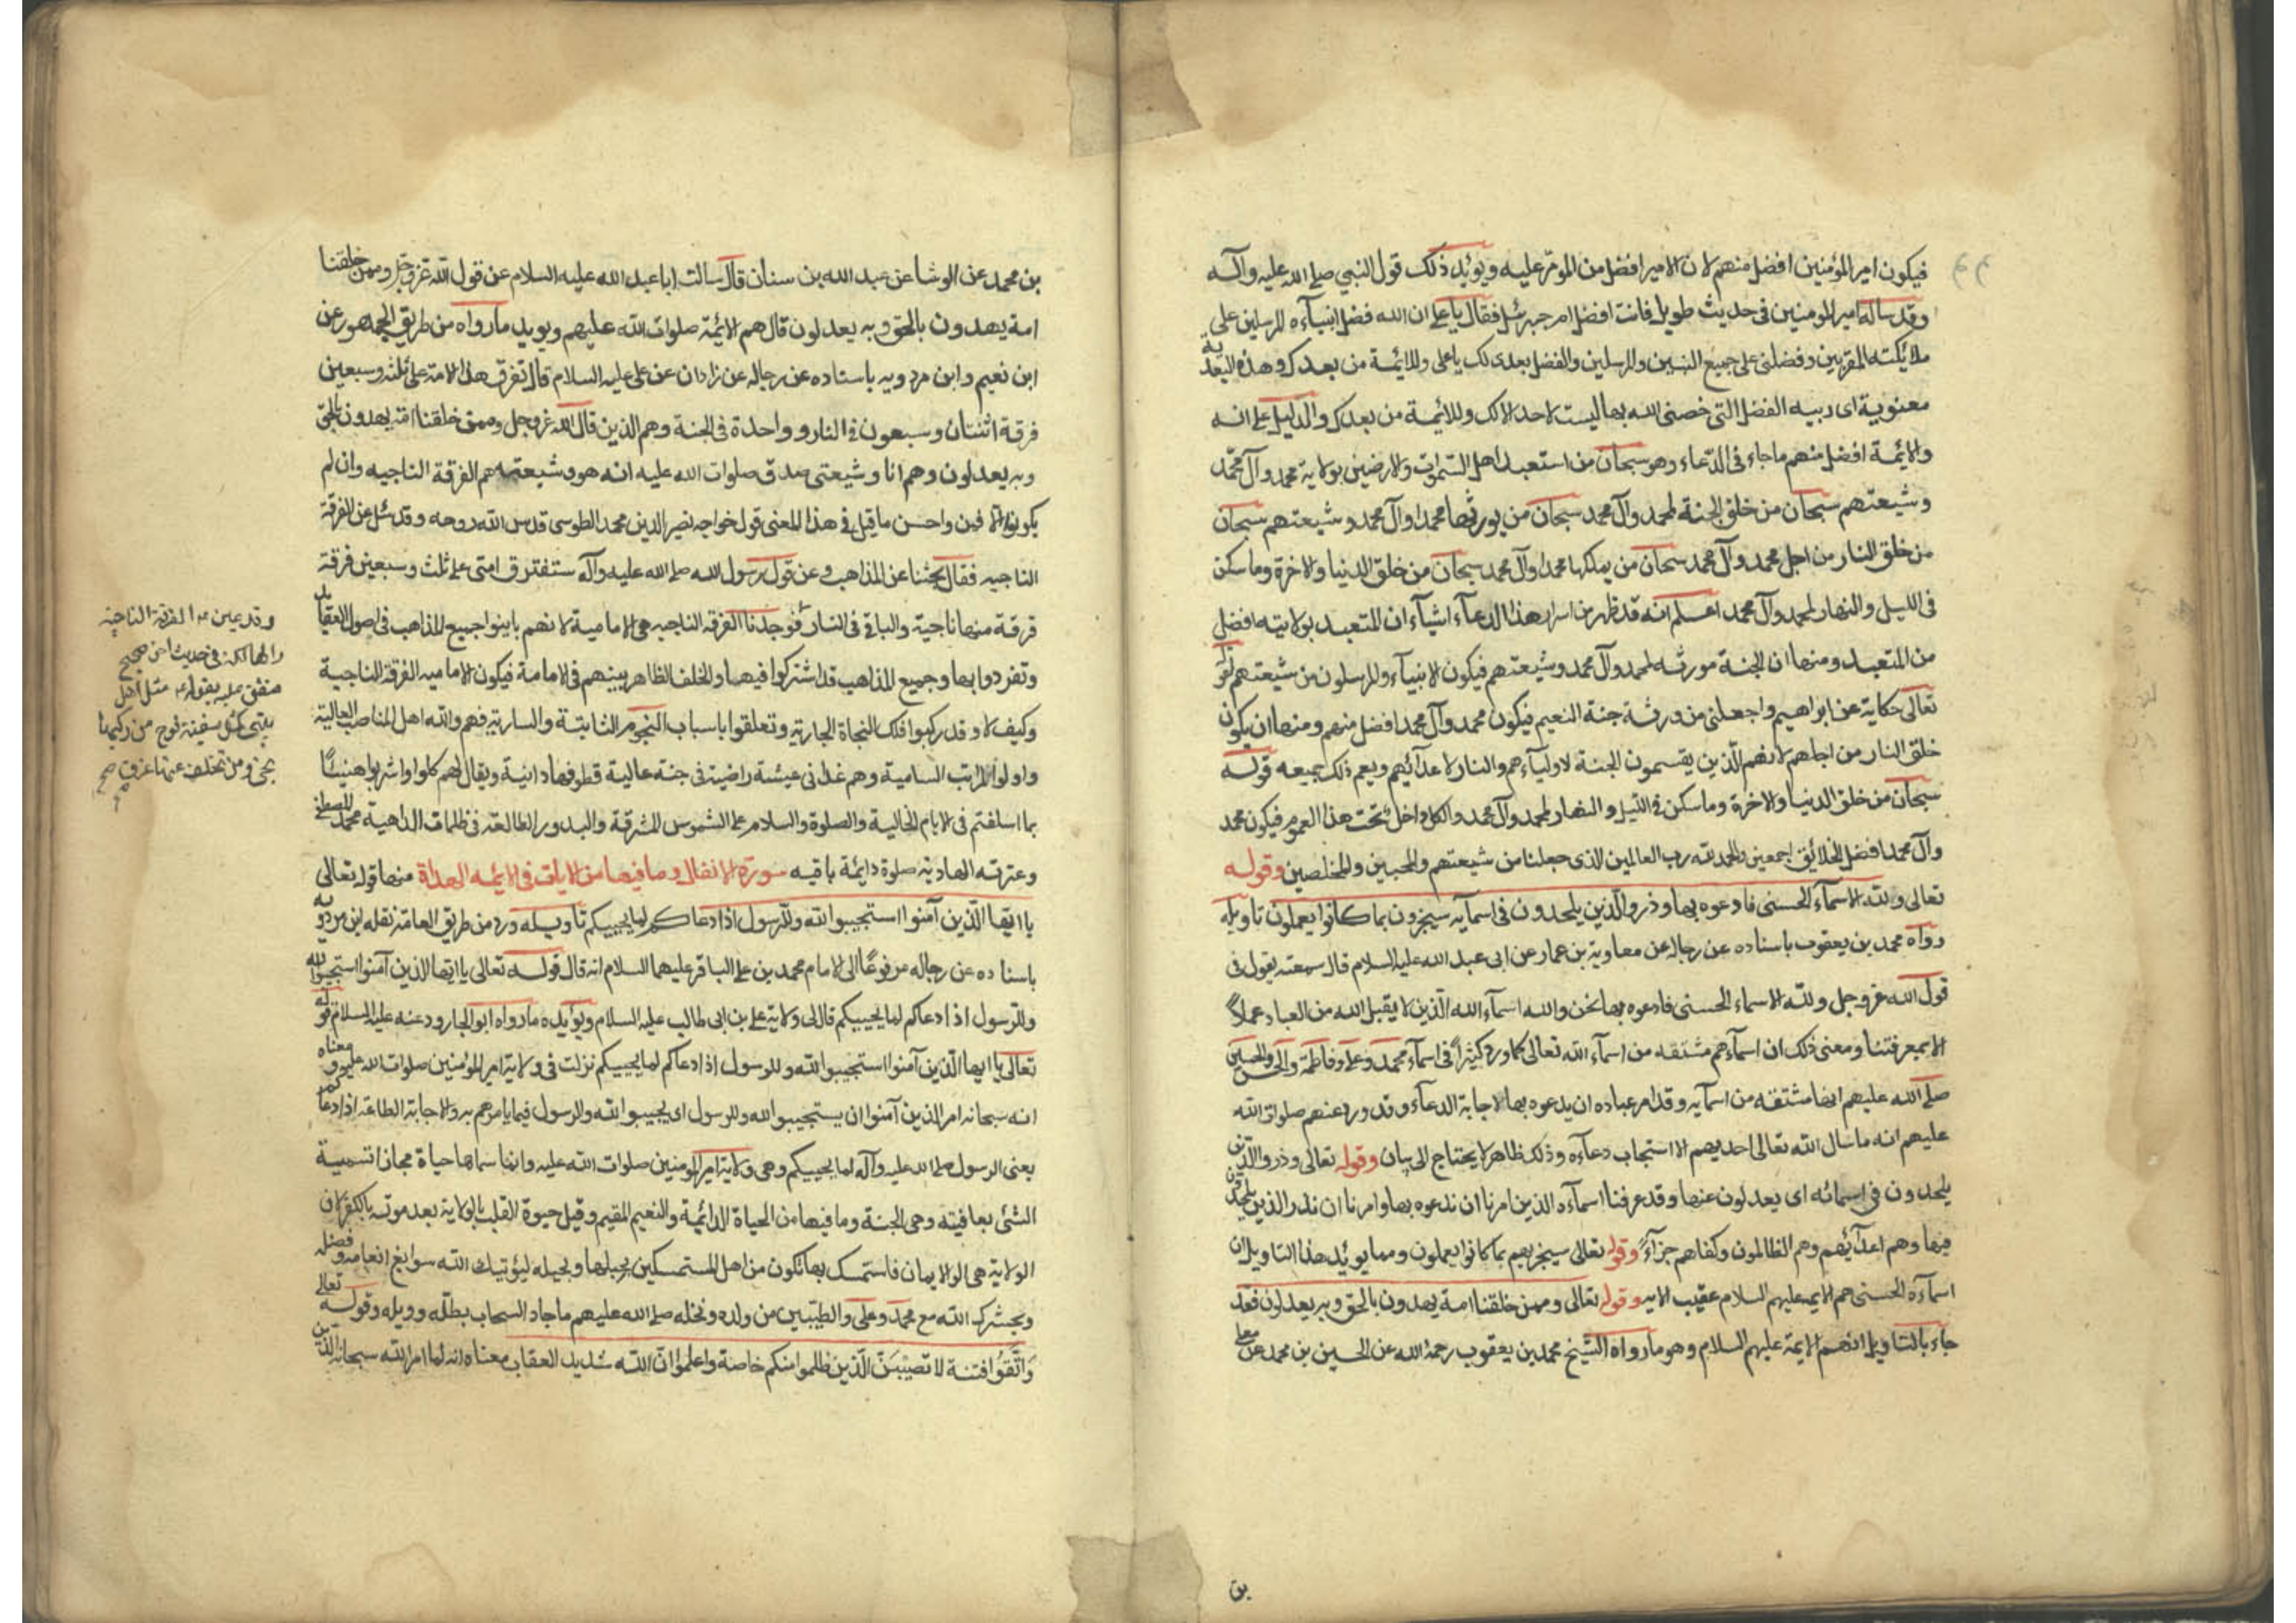 فيكون امير المؤمنين افضل منهم لان الامير افضل من المومر عليه ويؤيد ذلك قول النبي صلى الله عليه وآله
وقد ساله امير المومنين في حديث طويل فانت افضل ام جبرئيل فقال يا على ان الله فضل انبيآءه المرسلين على
ملائكته المقربين وفضلنى على جميع النبيين والمرسلين والفضل بعدى لك يا على وللائمة من بعدك وهذه البعدية
معنوية اى رتبه الفضل التى خصنى الله بها ليست لاحد الا لك وللائمة من بعدك والدليل على انه
والائمة افضل منهم ما جاء فى الدعاء وهو سبحان من استعبد اهل السموات والارضين بولاية محمد وآل محمد
وشيعتهم سبحان من خلق الجنة لمحمد وآل محمد سبحان من يورثها محمدا وآل محمد وشيعتهم سبحان
من خلق النار من اجل محمد وآل محمد سبحان من يملكها محمدا وآل محمد سبحان من خلق الدنيا والاخرة وما سكن
فى الليل والنهار لمحمد وآل محمد اعلم انه قد ظهر من اسرار هذا الدعآء اشيآء ان المتعبد بولايته افضل
من المتعبد ومنها ان الجنة مورثه لمحمد وآل محمد وشيعتهم فيكون الانبيآء والمرسلون من شيعتهم لقوله
تعالى حكاية عن ابراهيم واجعلنى من ورثة جنة النعيم فيكون محمد وآل محمد افضل منهم ومنها ان يكون
خلق النار من اجلهم لانهم الذين يقسمون الجنة لاوليآءهم والنار لاعدآئهم ويعم ذلك جميعه قوله
سبحان من خلق الدنيا والاخرة وما سكن فى الليل والنهار لمحمد وآل محمد والكل داخل تحت هذا العموم فيكون محمد
وآل محمد افضل الخلائق اجمعين والحمد لله رب العالمين الذى جعلنا من شيعتهم والمحبين والمخلصين وقوله
تعالى ولله الاسمآء الحسنى فادعوه بها وذروا الذين يلحدون فى اسمآيه سيجزون بما كانوا يعملون تاويله
رواه محمد بن يعقوب باسناده عن رجاله عن معاوية بن عمار عن ابى عبد الله عليه السلام قال سمعته يقول فى
قول الله عز وجل ولله الاسماء الحسنى فادعوه بها نحن والله اسمآء الله الذين لا يقبل الله من العباد عملاً
الا بمعرفتنا ومعنى ذلك ان اسمآءهم مشتقه من اسمآء الله تعالى كما ورد كثيراً فى اسمآء محمد وعلى وفاطمة والحسن والحسين
صلى الله عليهم انها مشتقه من اسمآيه وقد امر عباده ان يدعوه بها لاجابة الدعآء وقد ورد عنهم صلوات الله
عليهم انه ما سال الله تعالى احد بهم الا استجاب دعآءه وذلك ظاهر لا يحتاج الى بيان وقوله تعالى وذروا الذين
يلحدون فى اسمائه اى يعدلون عنها وقد عرفنا اسمآءه الذين امرنا ان ندعوه بها وامرنا ان نذر الذين يلحدون
فيها وهم اعدآئهم وهم الظالمون وكفاهم جزآءً وقوله تعالى سيجزيهم بما كانوا يعملون ومما يؤيد هذا التاويل ان
اسمآءه الحسنى هم الايمه عليهم السلام عقيب الايه وقوله تعالى وممن خلقنا امة يهدون بالحق وبه يعدلون فقد
جاء بالتاويل انهم الايمة عليهم السلام وهو ما رواه الشيخ محمد بن يعقوب رحمة الله عن الحسين بن محمد عن معلى
بن
بن محمد عن الوشا عن عبد الله بن سنان قال سالت ابا عبد الله عليه السلام عن قول الله عز وجل وممن خلقنا
امة يهدون بالحق وبه يعدلون قال هم الائمة صلوات الله عليهم ويويد ما رواه من طريق الجمهور عن
ابن نعيم وابن مردويه باسناده عن رجاله عن زادان عن على عليه السلام قال تفرق هذا الامة على ثلثه وسبعين
فرقة اثنتان وسبعون فى النار وواحدة فى الجنة وهم الذين قال الله عز وجل وممن خلقنا امة يهدون بالحق
وبه يعدلون وهم انا وشيعتى صدق صلوات الله عليه انه هو وشيعته هم الفرقة الناجيه وان لم
يكونوا والا فمن واحسن ما قيل فى هذا المعنى قول خواجه نصير الدين محمد الطوسى قدس الله روحه وقد سئل عن الفرقة
الناجيه فقال بحثنا عن المذاهب وعن قول رسول الله صلى الله عليه وآله ستفترق امتى على ثلث وسبعين فرقة
فرقة منها ناجية والباقى فى النار فوجدنا الفرقه الناجيه هى الامامية لانهم باينوا جميع المذاهب فى اصول العقايد
وتفردوا بها وجميع المذاهب قد اشتركوا فيها والخلف الظاهر بينهم فى الامامة فيكون الاماميه الفرقة الناجية
وكيف لا وقد ركبوا فلك النجاة الجارية وتعلقوا باسباب النجوم الثابتة والسارية فهم والله اهل المناصب العالية
واولوا المراتب السامية وهم غدا فى عيشة راضية فى جنة عالية قطوفها دانية ويقال لهم كلوا واشربوا هنيئاً
بما اسلفتم فى الايام الخالية والصلوة والسلام على الشموس المشرقة والبدور الطالعة فى ظلمات الداهية محمد المصطفى
وعترته الهادية صلوة دايمة باقيه سورة الانفال وما فيها من الايات فى الائمه الهداة منها قوله تعالى
يا ايها الذين آمنوا استجيبوا لله وللرسول اذا دعاكم لما يحييكم تاويله ورد من طريق العامة نقله ابن مردويه
باسناده عن رجاله مرفوعاً الى الامام محمد بن على الباقر عليهما السلام انه قال قوله تعالى يا ايها الذين آمنوا استجيبوا لله
وللرسول اذا دعاكم لما يحييكم قال الى ولاية على بن ابى طالب عليه السلام ويؤايده ما رواه ابو الجارود عنه عليه السلام قوله
تعالى يا ايها الذين آمنوا استجيبوا لله وللرسول اذا دعاكم لما يحييكم نزلت فى ولاية امير المؤمنين صلوات الله عليه ومعناه
انه سبحانه امر الذين آمنوا ان يستجيبوا لله وللرسول اى يجيبوا لله والرسول فيما يامرهم به والاجابة الطاعة اذا دعاكم
يعنى الرسول صلى الله عليه وآله لما يحييكم وهى ولاية امير المومنين صلوات الله عليه وانما سماها حياة مجازا تسمية
الشئ بعاقبته وهى الجنة وما فيها من الحياة الدائمية والنعيم المقيم وقيل حيوة القلب بالولاية بعد موته بالكفر لان
الولاية هى الو الايمان فاستمسك بها تكون من اهل المستمسكين بحبلها وبحبله ليؤتيك الله سوابغ انعامه وفضله
ويحشرك الله مع محمد وعلى والطيبين من ولده ونجله صلى الله عليهم ما جاد السحاب بطله ووبله وقوله تعالى
وَاتَّقُوا فتنة لا تصيبَنّ الذين ظلموا منكم خاصة واعلموا انّ الله شديد العقاب معناه انه لما امر الله سبحانه الذين
وقد عين ع الفرقة الناجية
والهالكة فى حديث اخر صحيح
متفق عليه بقوله ع مثل اهل
بيتى كمثل سفينة نوح من ركبها
نجى ومن تخلف عنها غرق صح